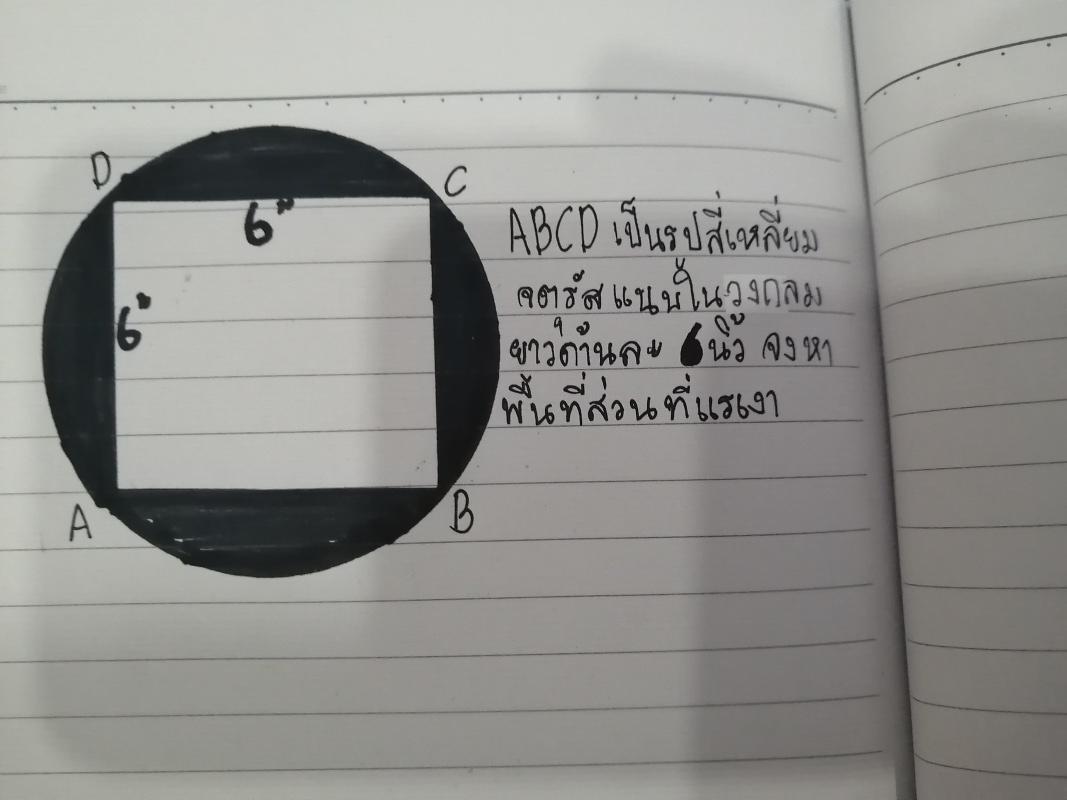 D
C
6"
6"
A
B
ABCD เป็นรูปสี่เหลี่ยม
จตุรัสแนบในวงกลม
ยาวด้านละ 6นิ้ว จงหา
พื้นที่ส่วนที่แรเงา